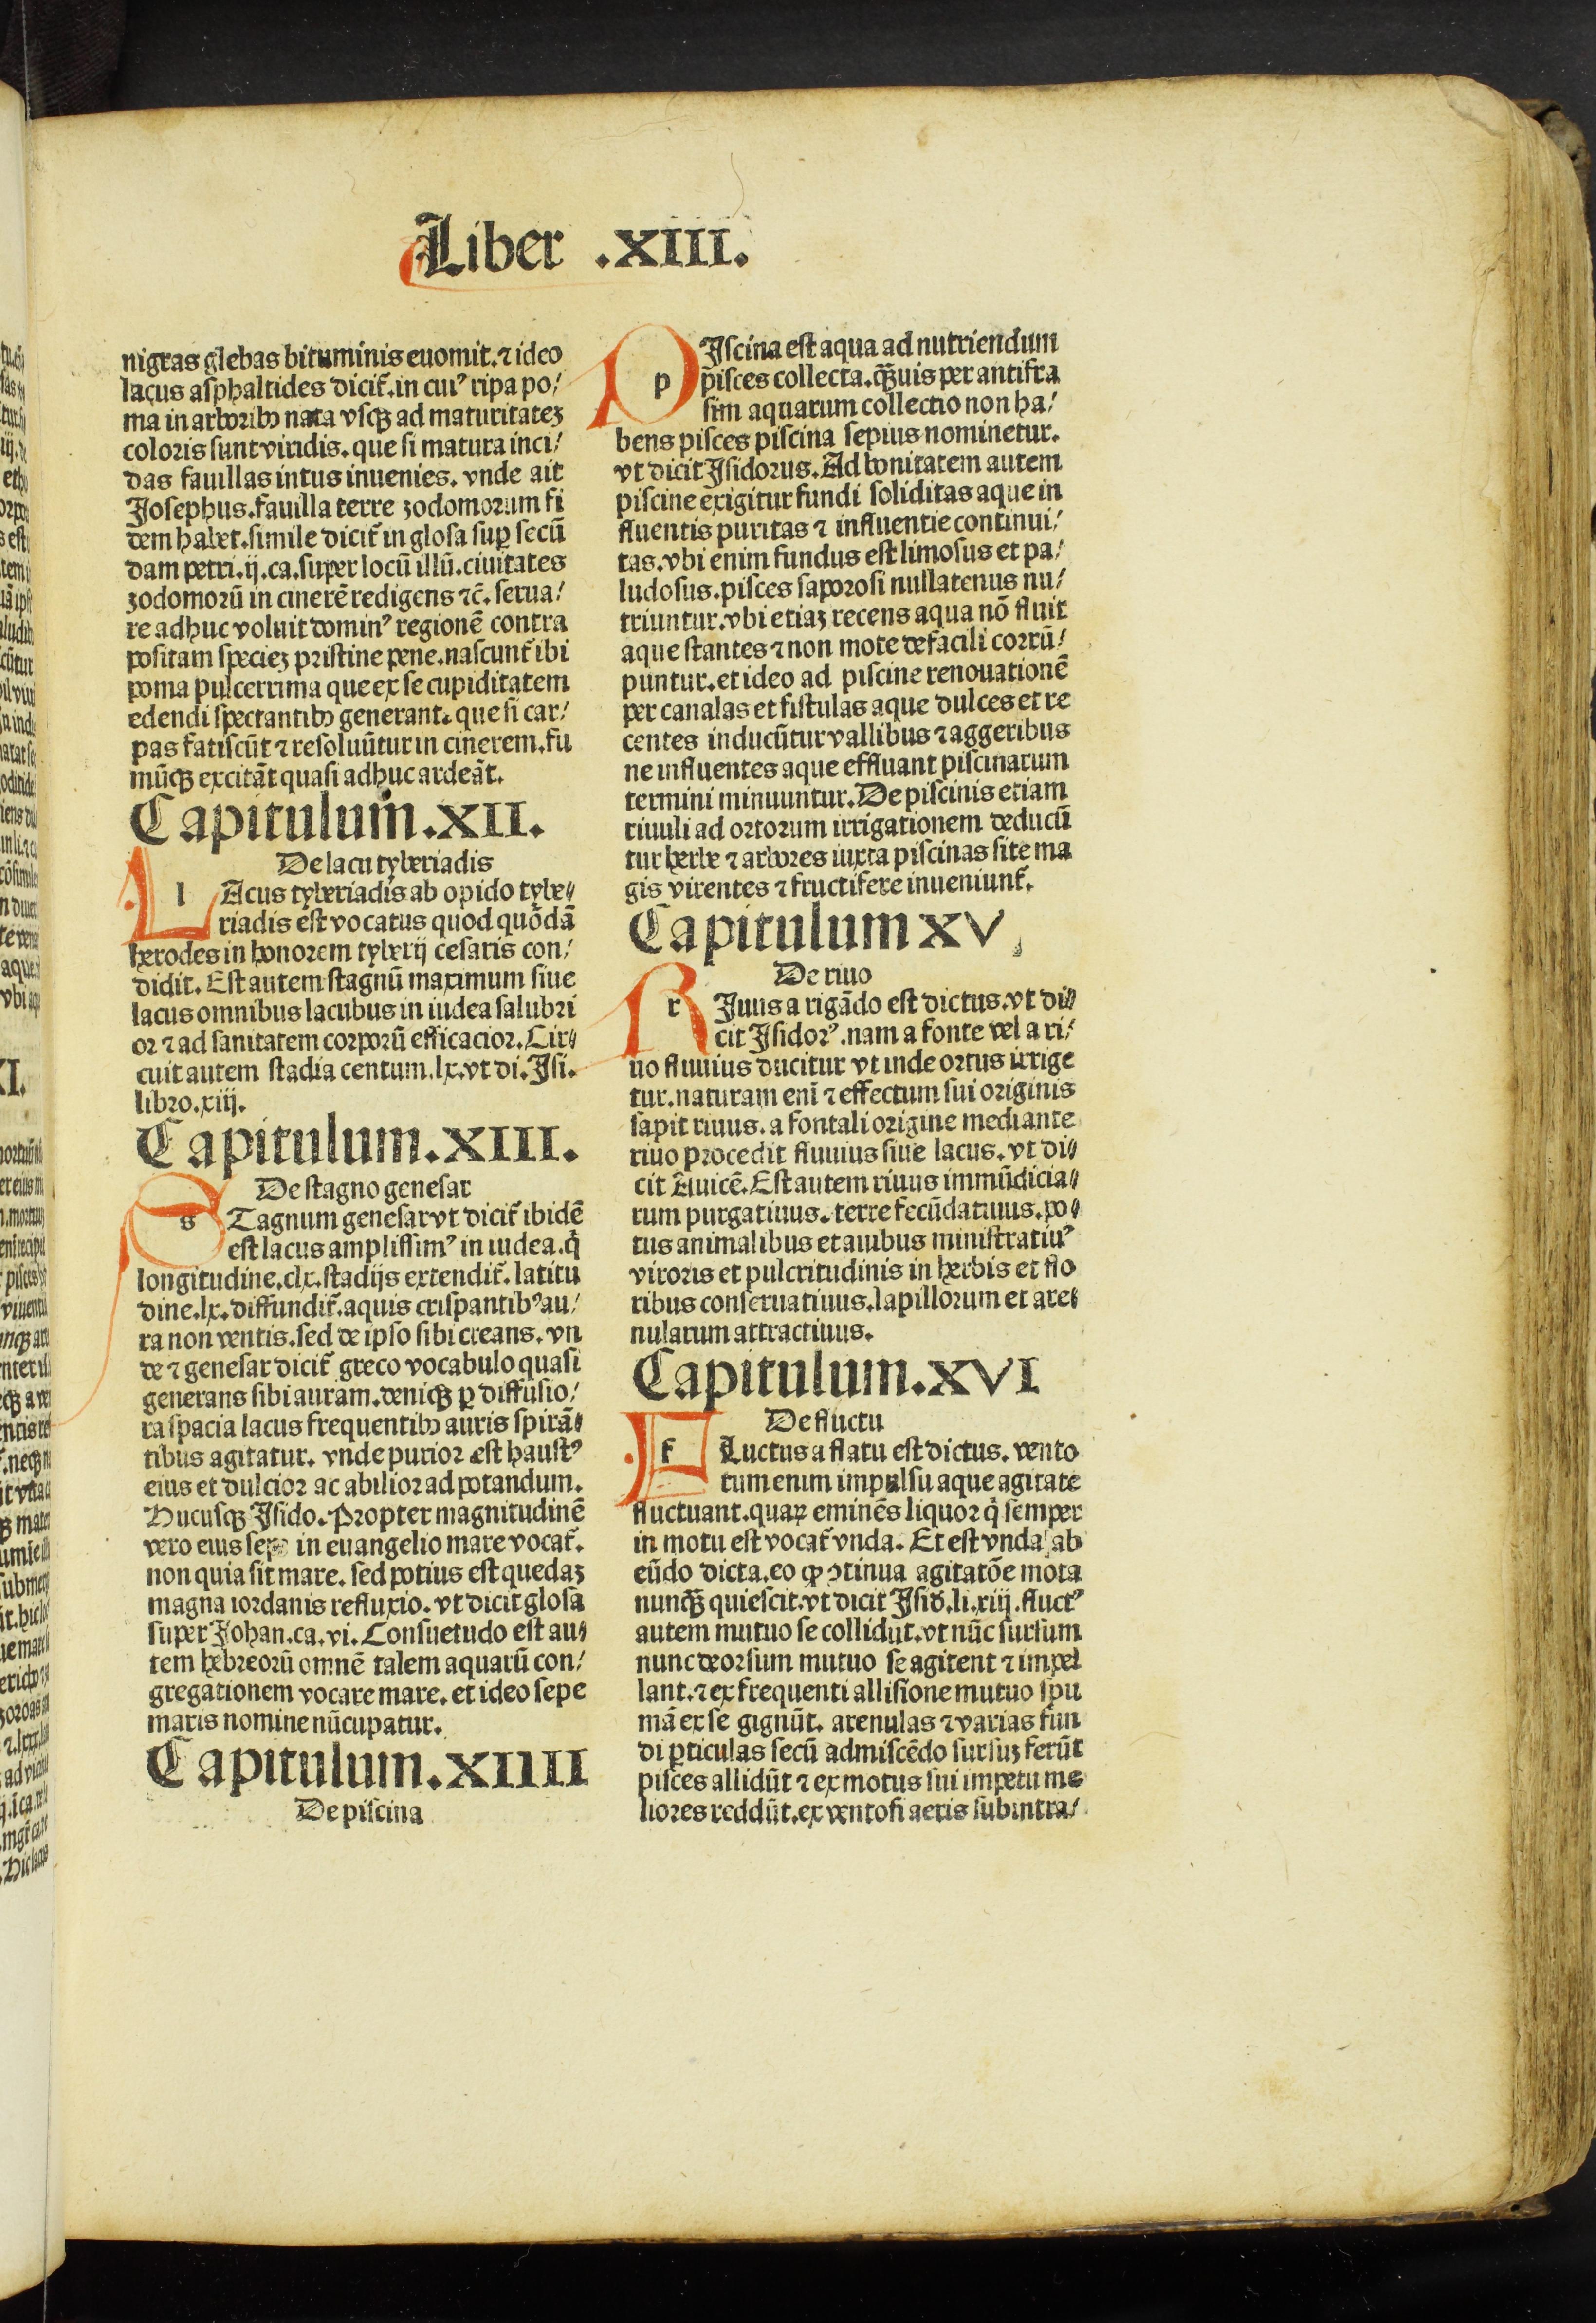 Liber .XIII.
nigras glebas bituminis euomit. ⁊ ideo
lacus asphaltides dicit᷑. in cuiꝰ ripa po/
ma in arboribꝫ nata vsqꝫ ad maturitateꝫ
coloris sunt viridis. que si matura inci/
das fauillas intus inuenies. vnde ait
Josephus. fauilla terre zodomorum fi
dem habet. simile dicit᷑ in glosa suꝑ secū
dam petri. ij. ca. super locū illū. ciuitates
zodomorū in cinerē redigens ⁊c̄. serua/
re adhuc voluit dominꝰ regionē contra
positam specieꝫ pristine pene. nascunt᷑ ibi
poma pulcerrima que ex se cupiditatem
edendi spectantibꝫ generant. que si car/
pas fatiscūt ⁊ resoluūtur in cinerem. fu
mūqꝫ excitāt quasi adhuc ardeāt.
Capitulum .XII.
De lacu tyberiadis
l Acus tyberiadis ab opido tybe/
riadis est vocatus quod quōdā
herodes in honorem tyberij cesaris con/
didit. Est autem stagnū maximum siue
lacus omnibus lacubus in iudea salubri
or ⁊ ad sanitatem corporū efficacior. Cir/
cuit autem stadia centum. lx. vt di. Jsi.
libro. xiij.
Capitulum .XIII.
De stagno genesar
s Tagnum genesar vt dicit᷑ ibidē
est lacus amplissimꝰ in iudea. q̇
longitudine. clx. stadijs extendit᷑. latitu
dine. lx. diffundit᷑. aquis crispantibꝰ au/
ra non ventis. sed de ipso sibi creans. vn
de ⁊ genesar dicit᷑ greco vocabulo quasi
generans sibi auram. deniqꝫ ꝑ diffusio/
ra spacia lacus frequentibꝫ auris spirā/
tibus agitatur. vnde purior est haustꝰ
eius et dulcior ac abilior ad potandum.
Hucusqꝫ Jsido. Propter magnitudinē
vero eius sepe in euangelio mare vocat᷑.
non quia sit mare. sed potius est quedaꝫ
magna iordanis refluxio. vt dicit glosa
super Johan. ca. vi. Consuetudo est au/
tem hebreorū omnē talem aquarū con/
gregationem vocare mare. et ideo sepe
maris nomine nūcupatur.
Capitulum .XIIII
De piscina
p Jscina est aqua ad nutriendum
pisces collecta. qꝫuis per antifra
sim aquarum collectio non ha/
bens pisces piscina sepius nominetur.
vt dicit Jsidorus. Ad bonitatem autem
piscine exigitur fundi soliditas aque in
fluentis puritas ⁊ influentie continui/
tas. vbi enim fundus est limosus et pa/
ludosus. pisces saporosi nullatenus nu/
triuntur. vbi etiaꝫ recens aqua nō fluit
aque stantes ⁊ non mote de facili corrū/
puntur. et ideo ad piscine renouationē
per canalas et fistulas aque dulces et re
centes inducūtur vallibus ⁊ aggeribus
ne influentes aque effluant piscinarum
termini minuuntur. De piscinis etiam
riuuli ad ortorum irrigationem deducū
tur herbe ⁊ arbores iuxta piscinas site ma
gis virentes ⁊ fructifere inueniunt᷑.
Capitulum XV
De riuo
r Juus a rigādo est dictus. vt di/
cit Jsidorꝰ. nam a fonte vel a ri/
uo fluuius ducitur vt inde ortus irrige
tur. naturam eni̅ ⁊ effectum sui originis
sapit riuus. a fontali origine mediante
riuo procedit fluuius siue lacus. vt di/
cit Auicē. Est autem riuus immūdicia/
rum purgatiuus. terre fecūdatiuus. po/
tus animalibus et auibus ministratiuꝰ
viroris et pulcritudinis in herbis et flo
ribus conseruatiuus. lapillorum et are/
nularum attractiuus.
Capitulum .XVI
De fluctu
f Luctus a flatu est dictus. vento
tum enim impulsu aque agitate
fluctuant. quaꝝ eminēs liquor q̇ semper
in motu est vocat᷑ vnda. Et est vnda ab
eūdo dicta. eo ꝙ ↄtinua agitatōe mota
nunqꝫ quiescit. vt dicit Jsid̄. li. xiij. fluctꝰ
autem mutuo se collidūt. vt nūc sursum
nunc deorsum mutuo se agitent ⁊ impel
lant. ⁊ ex frequenti allisione mutuo spu
mā ex se gignūt. arenulas ⁊ varias fun
di ꝑticulas secū admiscēdo sursuꝫ ferūt
pisces allidūt ⁊ ex motus sui impetu me
liores reddūt. ex ventosi aeris subintra/